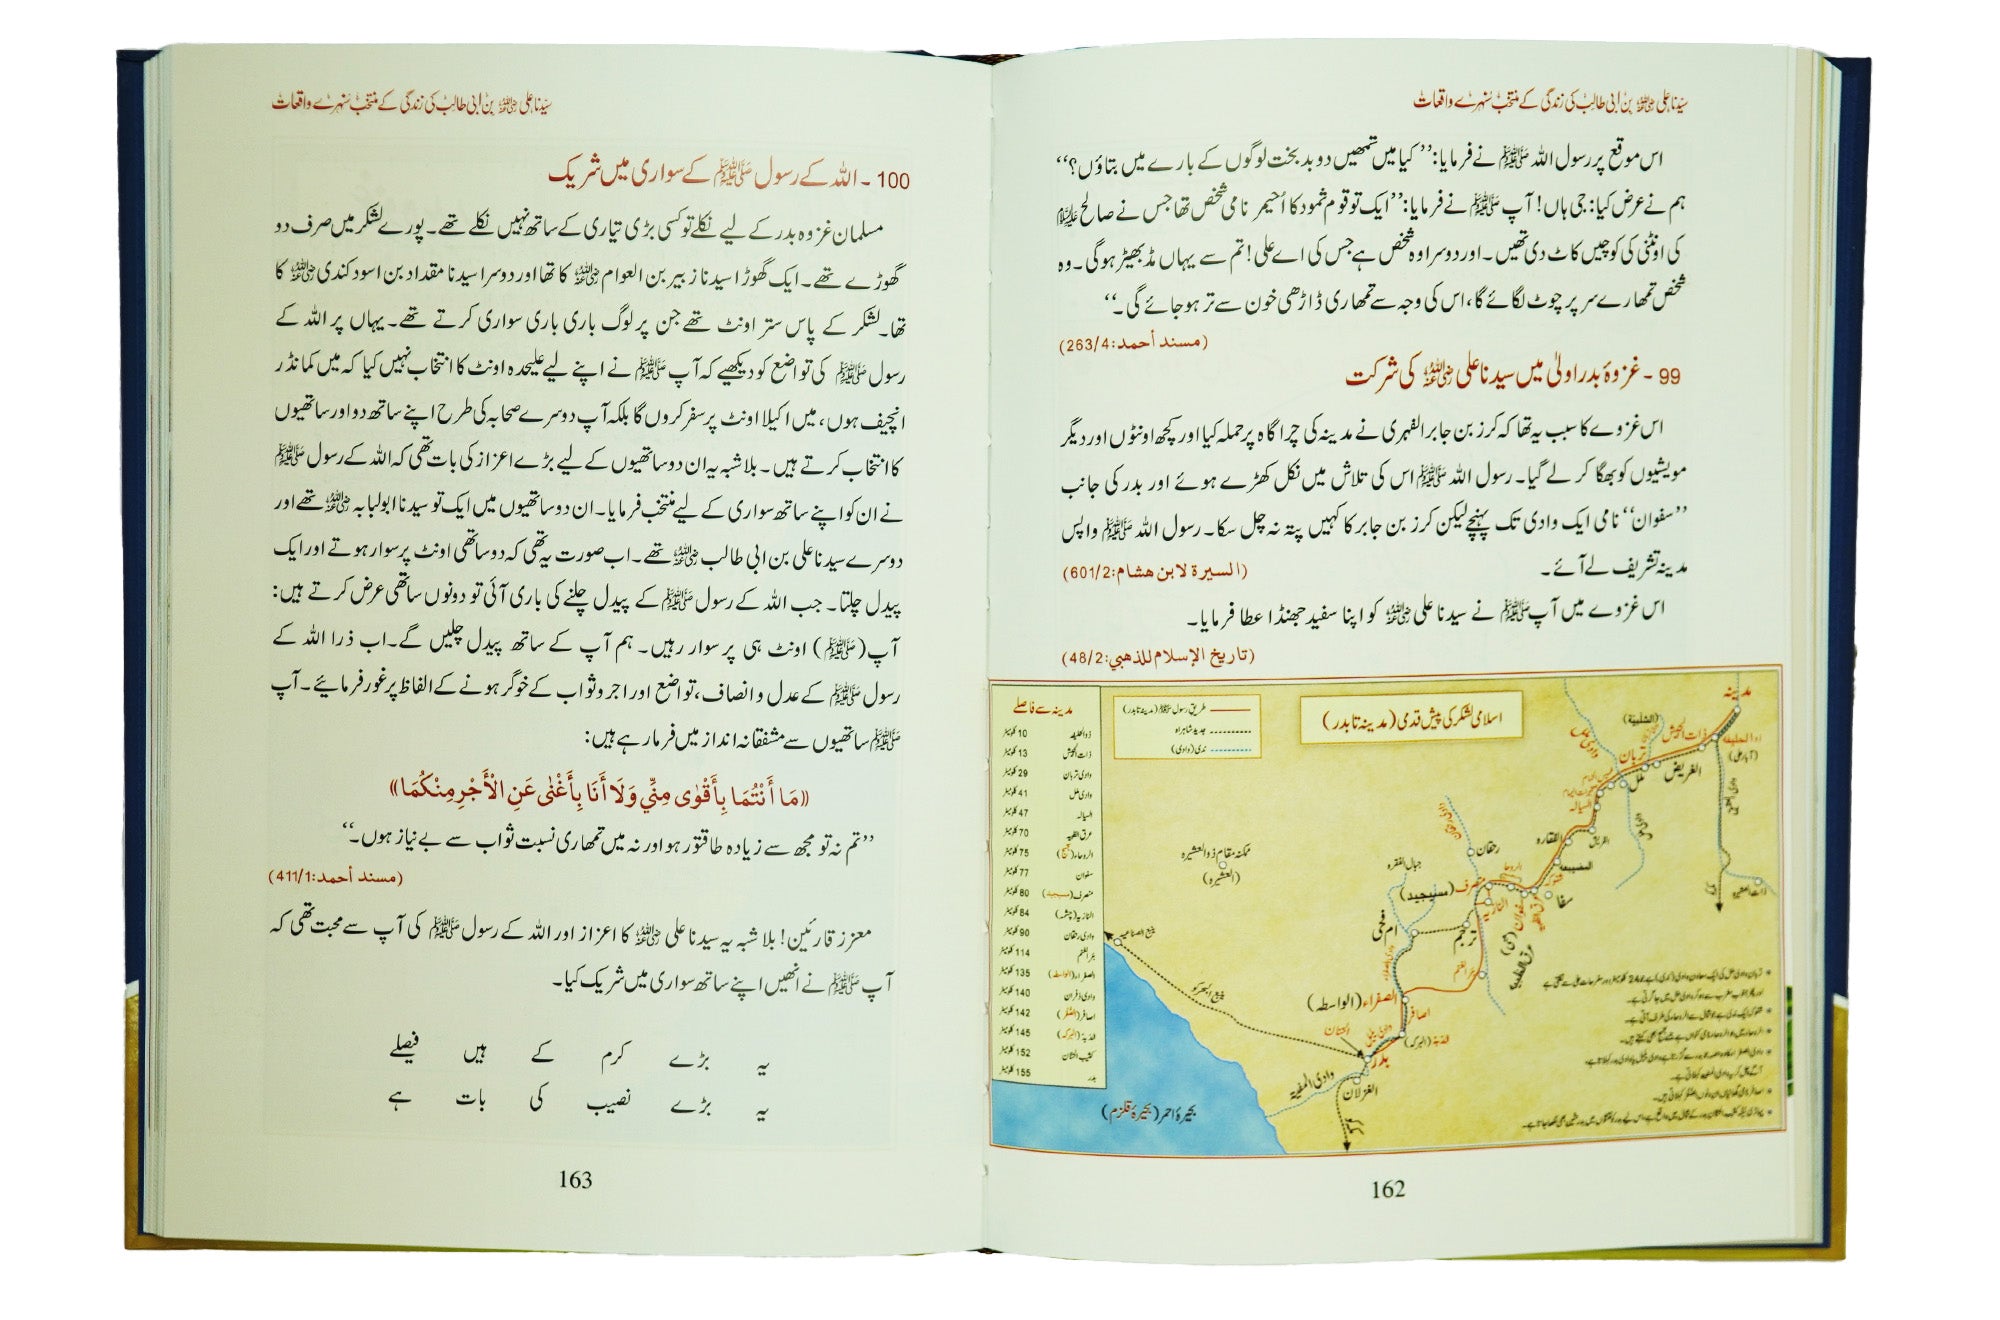 سیدنا علی رضی اللہ عنہ بن ابی طالب کی زندگی کے منتخب سنہرے واقعات
اس موقع پر رسول اللہ ﷺ نے فرمایا: ’’کیا میں تمھیں دو بدبخت لوگوں کے بارے میں بتاؤں؟‘‘
ہم نے عرض کیا: جی ہاں! آپ ﷺ نے فرمایا: ’’ایک تو قوم ثمود کا اُحیمر نامی شخص تھا جس نے صالح علیہ السلام
کی اونٹنی کی کوچیں کاٹ دی تھیں۔ اور دوسرا وہ شخص ہے جس کی اے علی! تم سے یہاں مڈبھیڑ ہوگی۔ وہ
شخص تمھارے سر پر چوٹ لگائے گا، اس کی وجہ سے تمھاری ڈاڑھی خون سے تر ہو جائے گی۔‘‘
(مسند أحمد: 263/4)
99 - غزوۂ بدر اولیٰ میں سیدنا علی رضی اللہ عنہ کی شرکت
اس غزوے کا سبب یہ تھا کہ کرز بن جابر الفہری نے مدینہ کی چراگاہ پر حملہ کیا اور کچھ اونٹوں اور دیگر
مویشیوں کو بھگا کر لے گیا۔ رسول اللہ ﷺ اس کی تلاش میں نکل کھڑے ہوئے اور بدر کی جانب
’’سفوان‘‘ نامی ایک وادی تک پہنچے لیکن کرز بن جابر کا کہیں پتہ نہ چل سکا۔ رسول اللہ ﷺ واپس
مدینہ تشریف لے آئے۔ (السيرة لابن هشام: 601/2)
اس غزوے میں آپ ﷺ نے سیدنا علی رضی اللہ عنہ کو اپنا سفید جھنڈا عطا فرمایا۔
(تاريخ الإسلام للذهبي: 48/2)
اسلامی لشکر کی پیش قدمی (مدینہ تا بدر)
طریق رسول ﷺ (مدینہ تا بدر)
جدید شاہراہ
ندی (وادی)
مدینہ سے فاصلے
ذوالحلیفہ 10 کلومیٹر
ذات الجیش 13 کلومیٹر
وادی تربان 29 کلومیٹر
وادی ملل 41 کلومیٹر
السیالہ 47 کلومیٹر
عرق الظبیہ 70 کلومیٹر
الروحاء 75 کلومیٹر
سفوان 77 کلومیٹر
منصرف (مسیجید) 80 کلومیٹر
النازیہ (چشمہ) 84 کلومیٹر
وادی رحقان 90 کلومیٹر
بئر الغنم 114 کلومیٹر
الصفراء (الواسطہ) 135 کلومیٹر
وادی ذفران 140 کلومیٹر
142 کلومیٹر
145 کلومیٹر
152 کلومیٹر
بدر 155 کلومیٹر
مدینہ
ذات الجیش
تربان
ملل
السیالہ
رحقان
منصرف (مسیجید)
النازیہ
بئر الغنم
ام حی
الصفراء (الواسطہ)
بدر
ینبع البحر کو
ممکنہ مقام ذوالعشیرہ
(العشیرہ)
بحیرۂ احمر (بحیرۂ قلزم)
162
سیدنا علی رضی اللہ عنہ بن ابی طالب کی زندگی کے منتخب سنہرے واقعات
100 - اللہ کے رسول ﷺ کے سواری میں شریک
مسلمان غزوہ بدر کے لیے نکلے تو کسی بڑی تیاری کے ساتھ نہیں نکلے تھے۔ پورے لشکر میں صرف دو
گھوڑے تھے۔ ایک گھوڑا سیدنا زبیر بن العوام رضی اللہ عنہ کا تھا اور دوسرا سیدنا مقداد بن اسود کندی رضی اللہ عنہ کا
تھا۔ لشکر کے پاس ستر اونٹ تھے جن پر لوگ باری باری سواری کرتے تھے۔ یہاں پر اللہ کے
رسول ﷺ کی تواضع کو دیکھیے کہ آپ ﷺ نے اپنے لیے علیحدہ اونٹ کا انتخاب نہیں کیا کہ میں کمانڈر
انچیف ہوں، میں اکیلا اونٹ پر سفر کروں گا بلکہ آپ دوسرے صحابہ کی طرح اپنے ساتھ دو اور ساتھیوں
کا انتخاب کرتے ہیں۔ بلاشبہ یہ ان دو ساتھیوں کے لیے بڑے اعزاز کی بات تھی کہ اللہ کے رسول ﷺ
نے ان کو اپنے ساتھ سواری کے لیے منتخب فرمایا۔ ان دو ساتھیوں میں ایک تو سیدنا ابولبابہ رضی اللہ عنہ تھے اور
دوسرے سیدنا علی بن ابی طالب رضی اللہ عنہ تھے۔ اب صورت یہ تھی کہ دو ساتھی اونٹ پر سوار ہوتے اور ایک
پیدل چلتا۔ جب اللہ کے رسول ﷺ کے پیدل چلنے کی باری آئی تو دونوں ساتھی عرض کرتے ہیں:
آپ (ﷺ) اونٹ ہی پر سوار رہیں۔ ہم آپ کے ساتھ پیدل چلیں گے۔ اب ذرا اللہ کے
رسول ﷺ کے عدل و انصاف، تواضع اور اجر و ثواب کے خوگر ہونے کے الفاظ پر غور فرمائیے۔ آپ
ﷺ ساتھیوں سے مشفقانہ انداز میں فرما رہے ہیں:
«مَا أَنْتُمَا بِأَقْوٰى مِنِّي وَلَا أَنَا بِأَغْنٰى عَنِ الْأَجْرِ مِنْكُمَا»
’’تم نہ تو مجھ سے زیادہ طاقتور ہو اور نہ میں تمھاری نسبت ثواب سے بے نیاز ہوں۔‘‘
(مسند أحمد: 411/1)
معزز قارئین! بلاشبہ یہ سیدنا علی رضی اللہ عنہ کا اعزاز اور اللہ کے رسول ﷺ کی آپ سے محبت تھی کہ
آپ ﷺ نے انھیں اپنے ساتھ سواری میں شریک کیا۔
یہ بڑے کرم کے ہیں فیصلے
یہ بڑے نصیب کی بات ہے
163